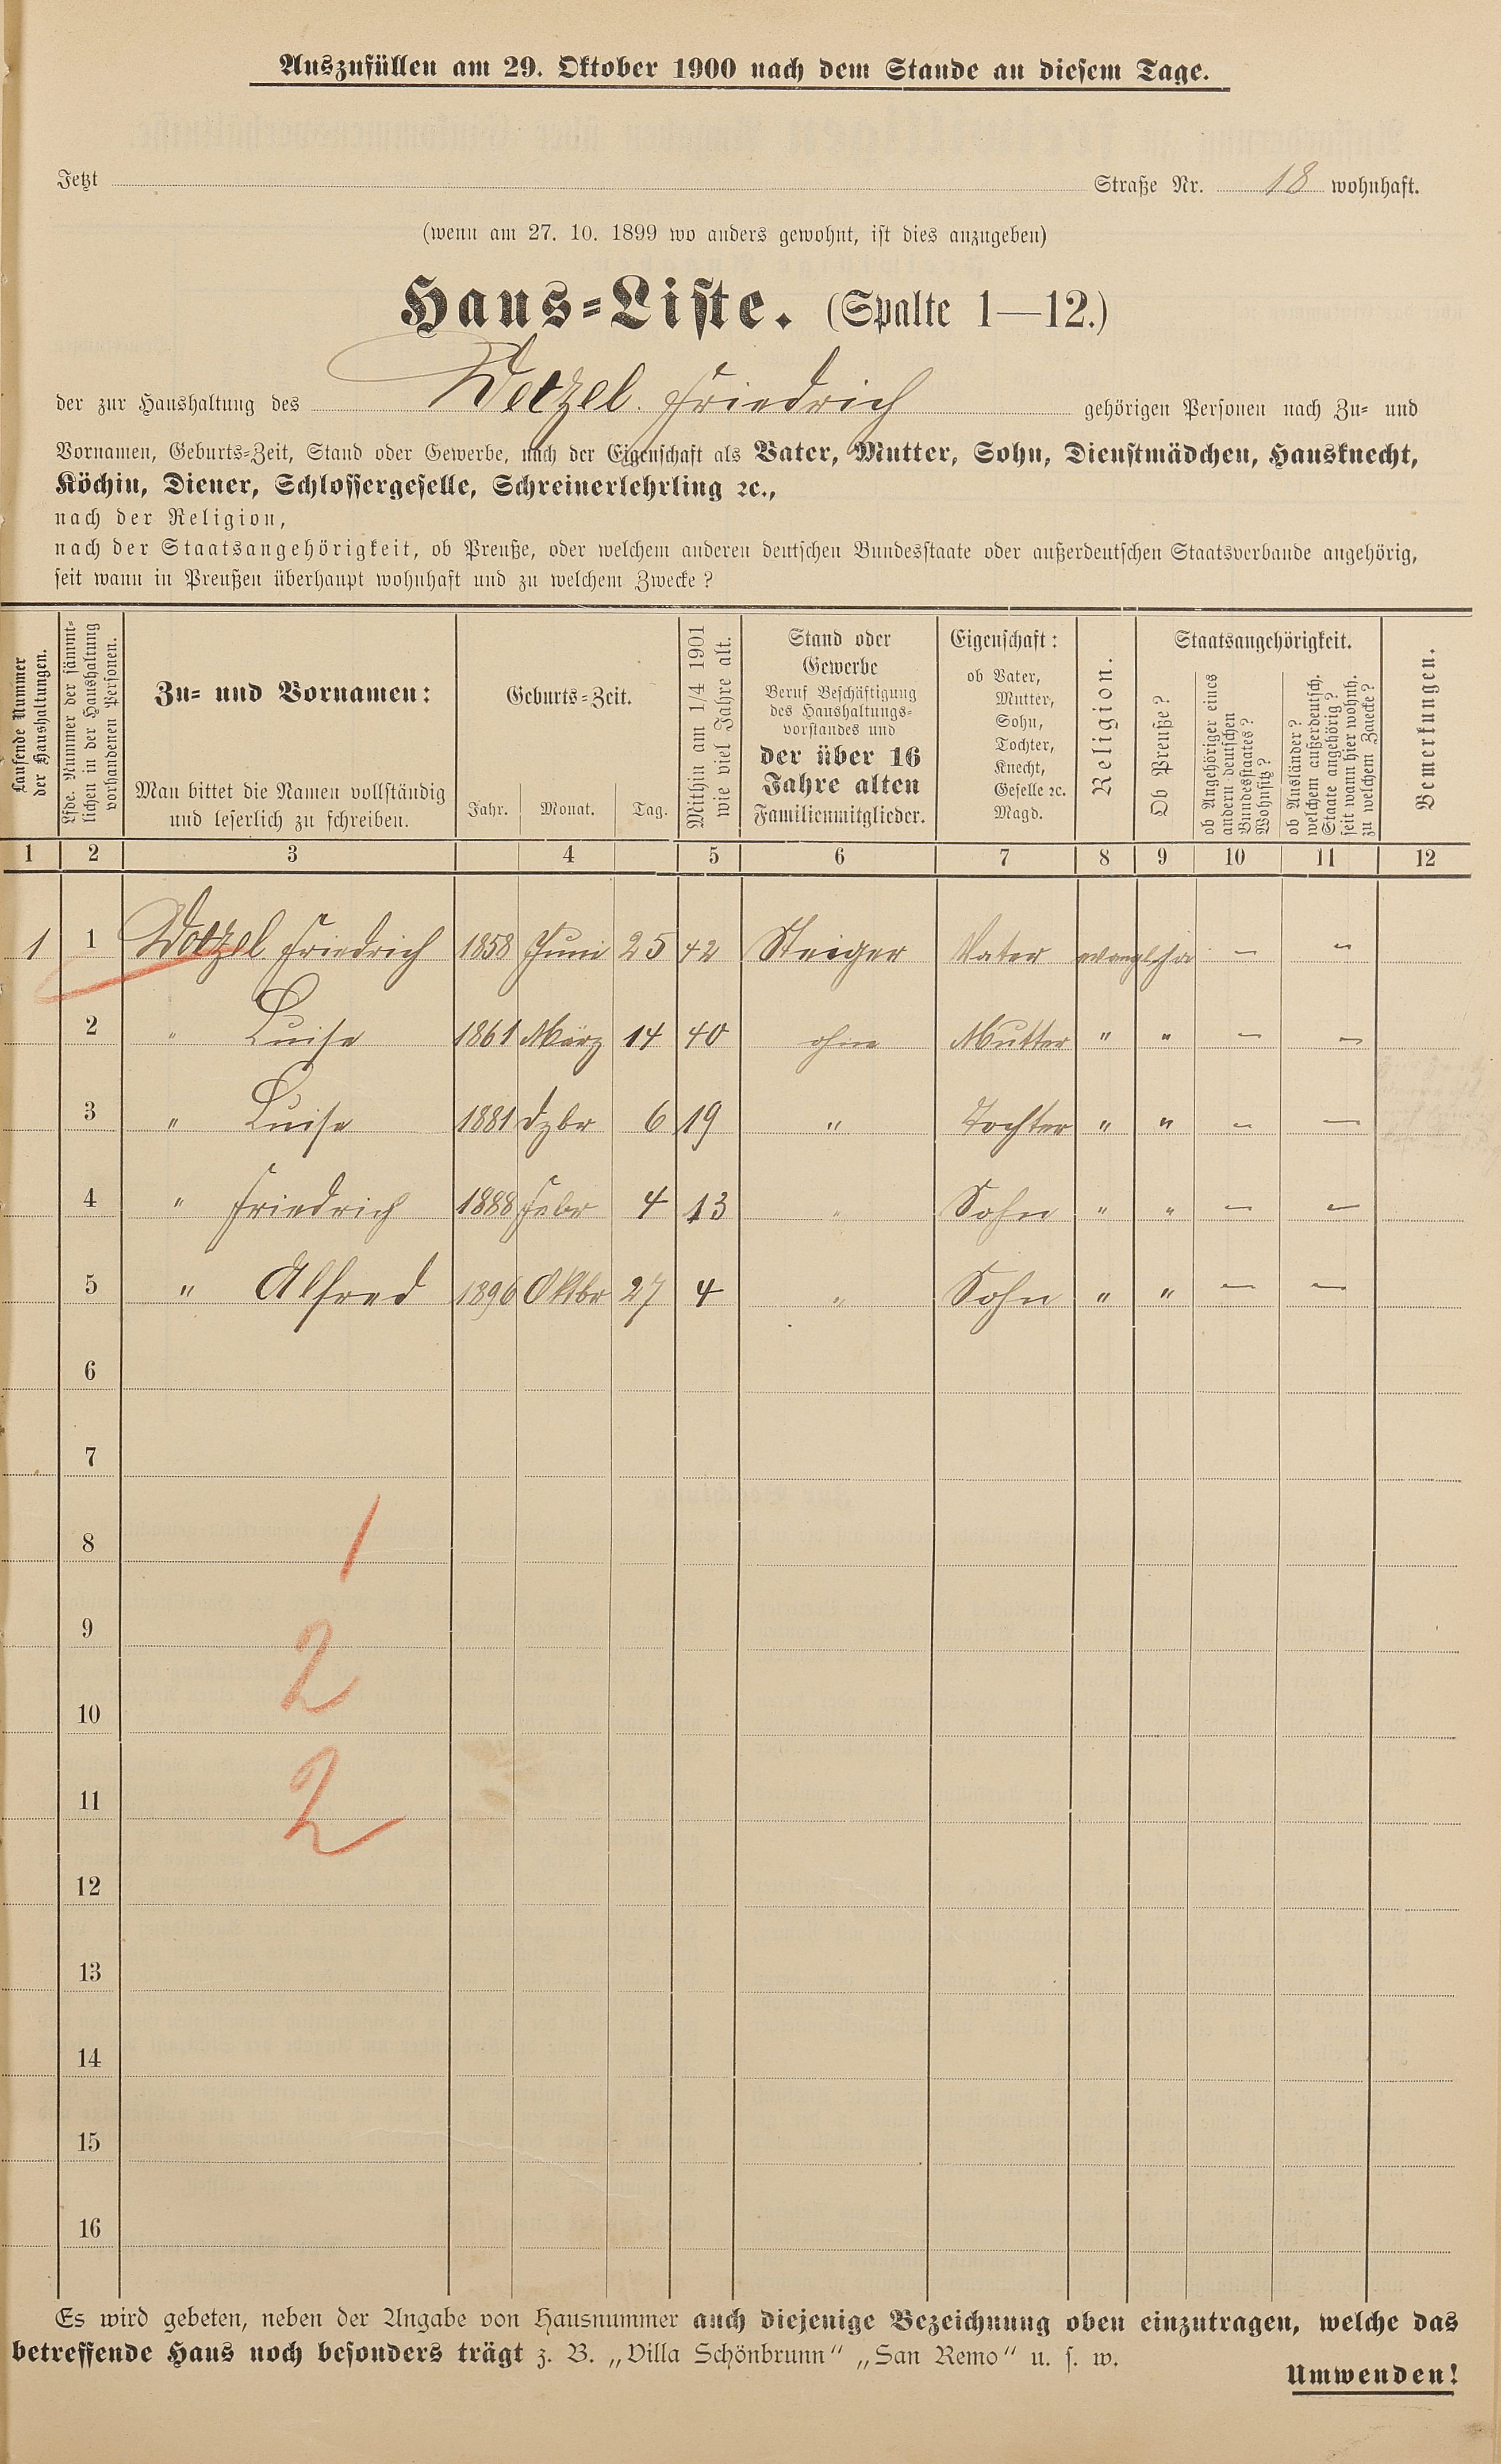 Auszufüllen am 29. Oktober 1900 nach dem Stande an diesem Tage.
Jetzt Straße Nr. 18 wohnhaft.
(wenn am 27. 10. 1899 wo anders gewohnt, ist dies anzugeben)
Haus-Liste. (Spalte 1—12.)
der zur Haushaltung des Wetzel Friedrich gehörigen Personen nach Zu- und
Vornamen, Geburts-Zeit, Stand oder Gewerbe, nach der Eigenschaft als Vater, Mutter, Sohn, Dienstmädchen, Hausknecht,
Köchin, Diener, Schlossergeselle, Schreinerlehrling ꝛc.,
nach der Religion,
nach der Staatsangehörigkeit, ob Preuße, oder welchem anderen deutschen Bundesstaate oder außerdeutschen Staatsverbande angehörig,
seit wann in Preußen überhaupt wohnhaft und zu welchem Zwecke?
Laufende Nummer
der Haushaltungen.
Lfde. Nummer der sämmt-
lichen in der Haushaltung
vorhandenen Personen.
Zu- und Vornamen:
Man bittet die Namen vollständig
und leserlich zu schreiben.
Geburts-Zeit.
Jahr. Monat. Tag.
Mithin am 1/4 1901
wie viel Jahre alt.
Stand oder
Gewerbe
Beruf Beschäftigung
des Haushaltungs-
vorstandes und
der über 16
Jahre alten
Familienmitglieder.
Eigenschaft:
ob Vater,
Mutter,
Sohn,
Tochter,
Knecht,
Geselle ꝛc.
Magd.
Religion.
Staatsangehörigkeit.
Ob Preuße?
ob Angehöriger eines
andern deutschen
Bundesstaates?
Wohnsitz?
ob Ausländer?
welchem außerdeutsch.
Staate angehörig?
seit wann hier wohnh.
zu welchem Zwecke?
Bemerkungen.
1 2 3 4 5 6 7 8 9 10 11 12
1 1 Wetzel Friedrich 1858 Juni 25 42 Steiger Vater evangl ja — —
2 " Luise 1861 März 14 40 ohne Mutter " " — —
3 " Luise 1881 Dzbr 6 19 " Tochter " " — —
4 " Friedrich 1888 Febr 4 13 " Sohn " " — —
5 " Alfred 1896 Oktbr 27 4 " Sohn " " — —
6
7
8 1
9 2
10
11 2
12
13
14
15
16
Es wird gebeten, neben der Angabe von Hausnummer auch diejenige Bezeichnung oben einzutragen, welche das
betreffende Haus noch besonders trägt z. B. „Villa Schönbrunn" „San Remo" u. s. w.
Umwenden!